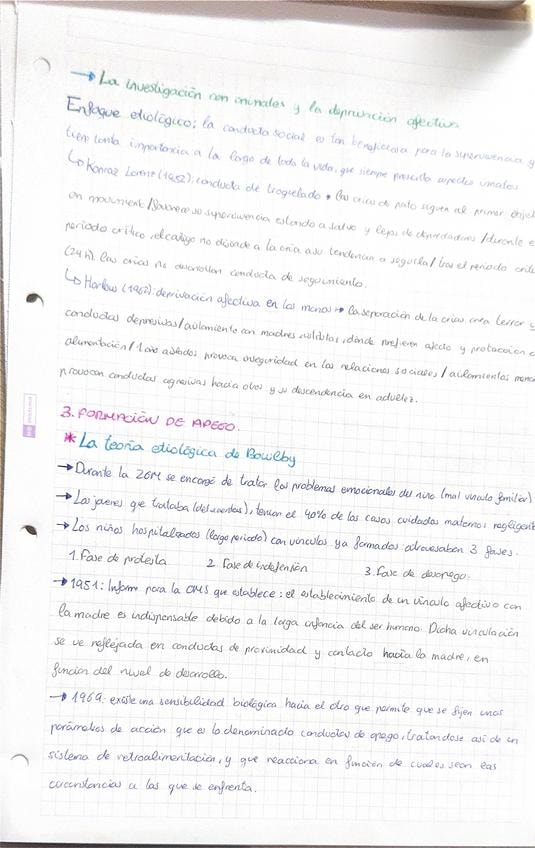 → La investigación con animales y la deprivación afectiva
Enfoque etiológico: la conducta social es tan beneficiosa para la supervivencia y
tiene tanta importancia a lo largo de toda la vida, que siempre presenta aspectos innatos
↳ Konraz Lorenz (1952): conducta de troquelado • las crías de pato siguen al primer objeto
en movimiento / favorece su supervivencia estando a salvo y lejos de depredadores / durante el
período crítico, el castigo no disuade a la cría a su tendencia a seguirla / tras el período crítico
(24 h). las crías no desarrollan conducta de seguimiento.
↳ Harlow (1962): deprivación afectiva en los monos → la separación de la crías crea terror y
conductas depresivas / aislamiento con madres, dónde prefieren afecto y protección
alimentación / 1 año aislados provoca inseguridad en las relaciones sociales / aislamientos
provocan conductas agresivas hacia otros y su descendencia en adultez.
3. FORMACIÓN DE APEGO.
* La teoría etiológica de Bowlby
→ Durante la 2GM se encargó de tratar los problemas emocionales del niño (mal vínculo familiar)
→ Los jóvenes que trataba (delincuentes), tenían el 40% de los casos cuidados maternos negligentes
→ Los niños hospitalizados (largo periodo) con vínculos ya formados: atravesaban 3 fases.
1. Fase de protesta 2. Fase de indefensión 3. Fase de desapego.
→ 1951: Informe para la OMS que establece: el establecimiento de un vínculo afectivo con
la madre es indispensable debido a la larga infancia del ser humano. Dicha vinculación
se ve reflejada en conductas de proximidad y contacto hacia la madre, en
función del nivel de desarrollo.
→ 1969: existe una sensibilidad biológica hacia el otro que permite que se fijen unos
parámetros de acción que es lo denominado conductas de apego, tratándose así de un
sistema de retroalimentación, y que reacciona en función de cuales sean las
circunstancias a las que se enfrenta.